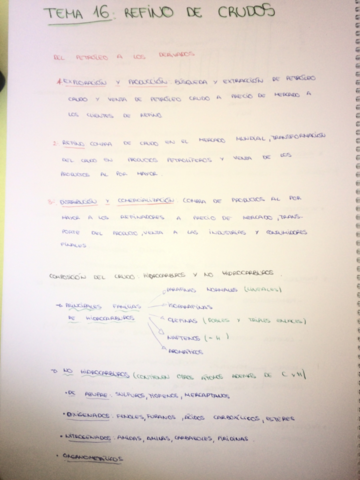 TEMA 16: REFINO DE CRUDOS
DEL PETRÓLEO A LOS DERIVADOS
EXPLORACIÓN Y PRODUCCIÓN BÚSQUEDA Y EXTRACCIÓN DE PETRÓLEO
CRUDO Y VENTA DE PETRÓLEO CRUDO A PRECIO DE MERCADO A
LOS CLIENTES DE REFINO
2. REFINO COMPRA DE CRUDO EN EL MERCADO MUNDIAL, TRANSFORMACIÓN
DEL CRUDO EN PRODUCTOS PETROLÍFEROS Y VENTA DE LOS
PRODUCTOS AL POR MAYOR
3. DISTRIBUCIÓN Y COMERCIALIZACIÓN COMPRA DE PRODUCTOS AL POR
MAYOR A LOS REFINADORES A PRECIO DE MERCADO, TRANS-
PORTE DEL PRODUCTO, VENTA A LAS INDUSTRIAS Y CONSUMIDORES
FINALES
COMPOSICIÓN DEL CRUDO: HIDROCARBUROS Y NO HIDROCARBUROS.
PARAFINAS NORMALES
→ PRINCIPALES FAMILIAS ISOPARAFINAS
DE HIDROCARBUROS OLEFINAS (DOBLES Y TRIPLES ENLACES)
NAFTENOS
AROMÁTICOS
→ NO HIDROCARBUROS (CONTIENEN OTROS ÁTOMOS ADEMÁS DE C y H)
• DE AZUFRE: SULFUROS, TIOFENOS, MERCAPTANOS
• OXIGENADOS: FENOLES, FURANOS, ÁCIDOS CARBOXÍLICOS, ÉSTERES
• NITROGENADOS: AMIDAS, AMINAS, CARBAZOLES, PIRIDINAS
• ORGANOMETÁLICOS